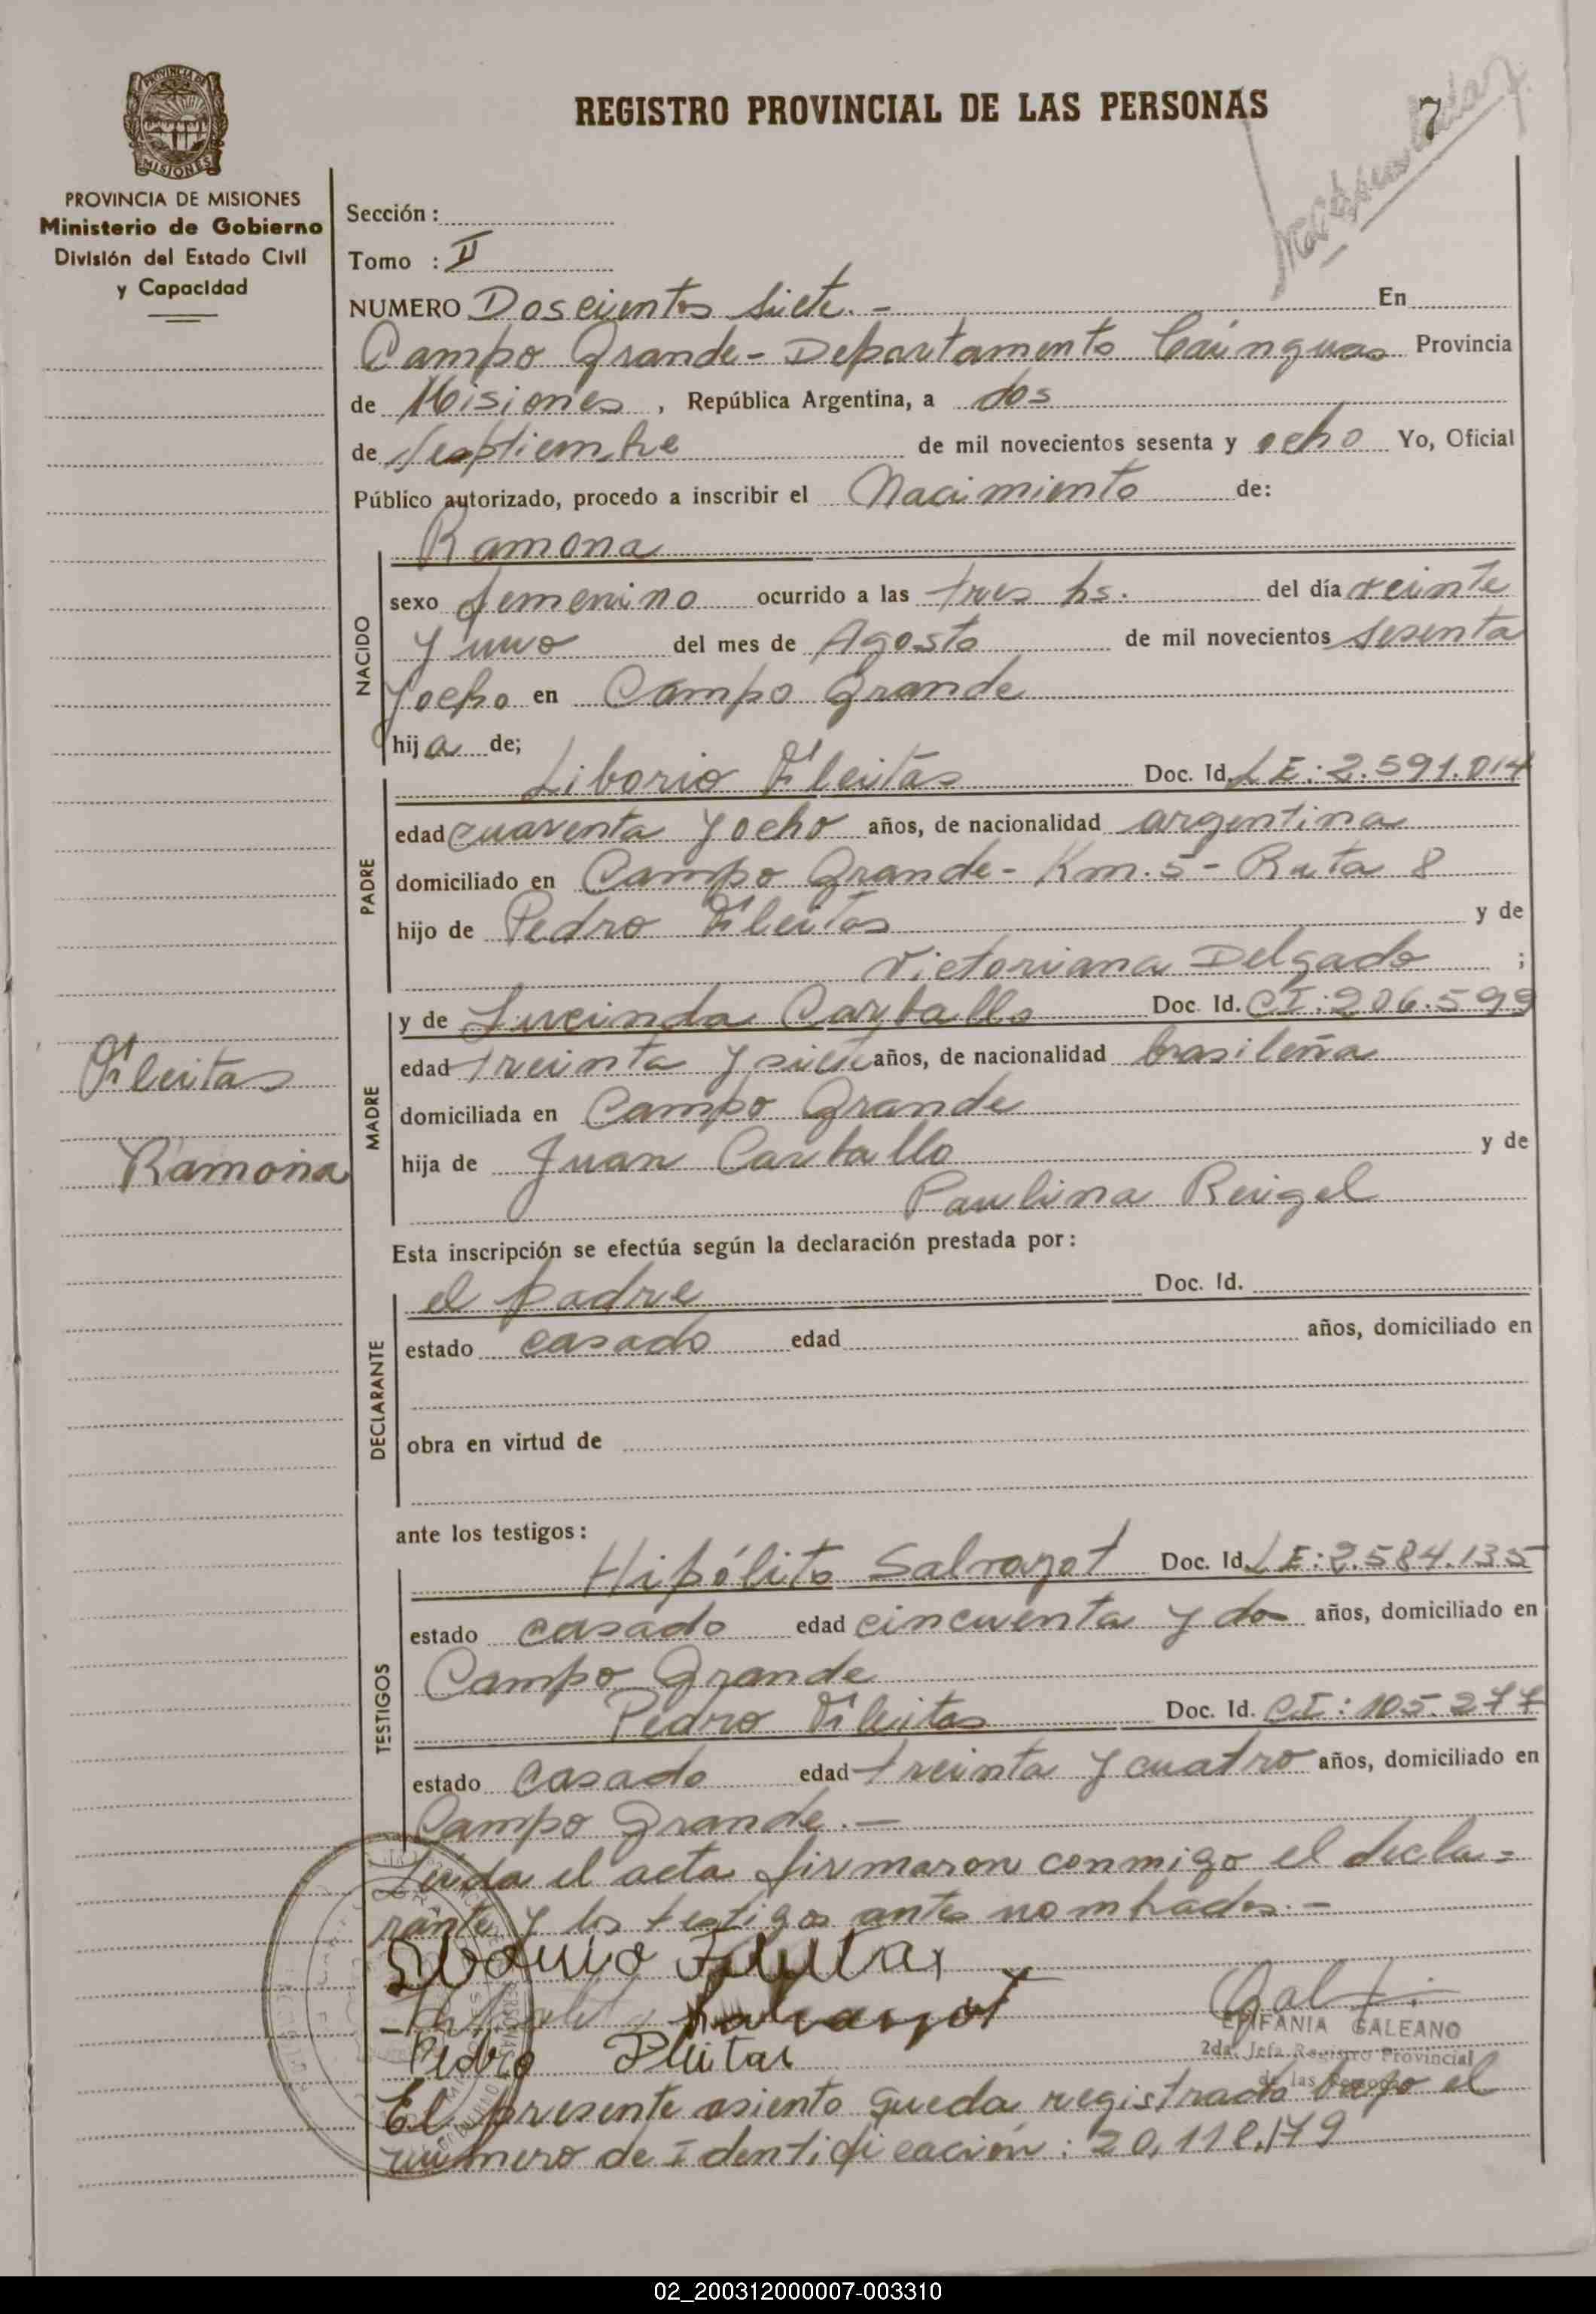 REGISTRO PROVINCIAL DE LAS PERSONAS
7
PROVINCIA DE MISIONES
PROVINCIA DE MISIONES
Ministerio de Gobierno
División del Estado Civil
y Capacidad
Sección :
Tomo : II
NUMERO Doscientos Siete.- En
Campo Grande - Departamento Cáinguas Provincia
de Misiones, República Argentina, a dos
de Septiembre de mil novecientos sesenta y ocho Yo, Oficial
Público autorizado, procedo a inscribir el Nacimiento de:
Ramona
NACIDO
sexo femenino ocurrido a las tres hs. del día veinte
y uno del mes de Agosto de mil novecientos sesenta
y ocho en Campo Grande
hija de;
Liborio Fleitas Doc. Id. LE: 2.591.014
PADRE
edad cuarenta y ocho años, de nacionalidad argentina
domiciliado en Campo Grande - Km. 5 - Ruta 8
hijo de Pedro Fleitas y de
Victoriana Delgado ;
y de Lucinda Carballo Doc. Id. CI: 206.599
MADRE
edad treinta y siete años, de nacionalidad brasileña
domiciliada en Campo Grande
hija de Juan Carballo y de
Paulina Reigel
Fleitas
Ramona
Esta inscripción se efectúa según la declaración prestada por :
el padre Doc. Id.
DECLARANTE
estado casado edad años, domiciliado en
obra en virtud de
ante los testigos :
Hipólito Salvazot Doc. Id. LE: 2.584.135
TESTIGOS
estado casado edad cincuenta y dos años, domiciliado en
Campo Grande
Pedro Fleitas Doc. Id. CI: 105.277
estado casado edad treinta y cuatro años, domiciliado en
Campo Grande.-
Leída el acta firmaron conmigo el decla=
rante y los testigos antes nombrados.-
Liborio Fleitas
Pedro Fleitas
EPIFANIA GALEANO
2da. Jefa Registro Provincial
de las Personas
El presente asiento queda registrado bajo el
número de Identificación: 20.118.179
02_200312000007-003310